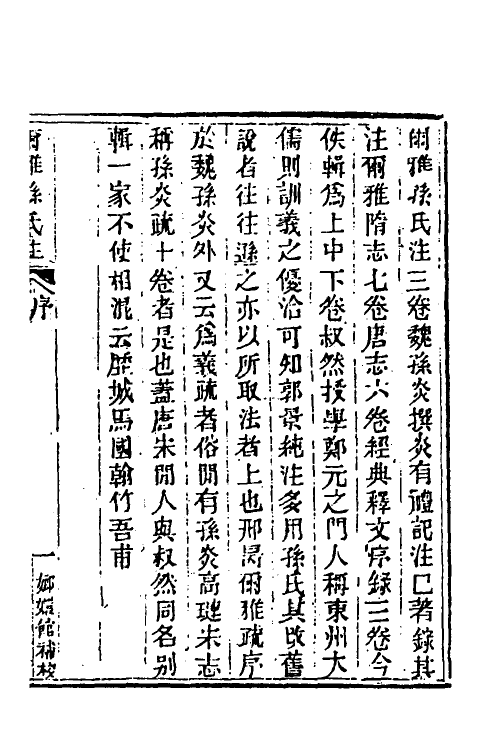 爾雅孫氏注三卷魏孫炎撰炎有禮記注已著錄其
注爾雅隋志七卷唐志六卷經典釋文序錄三卷今
佚輯爲上中下卷叔然授學鄭元之門人稱東州大
儒則訓義之優洽可知郭景純注多用孫氏其改舊
說者往往遜之亦以所取法者上也邢昺爾雅疏序
於魏孫炎外又云爲義疏者俗閒有孫炎高璉宋志
稱孫炎疏十卷者是也蓋唐宋閒人與叔然同名別
輯一家不使相混云歷城馬國翰竹吾甫
爾雅孫氏注 序 一 嫏嬛館補校